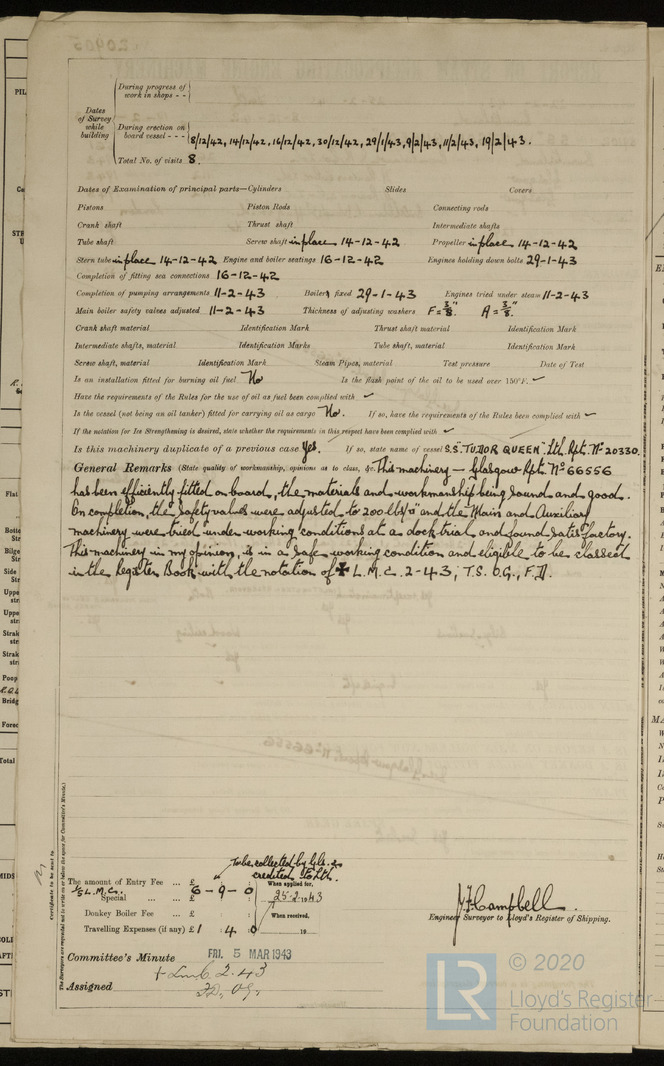 During progress of
work in shops - -
Dates
of Survey
while
building
During erection on
board vessel - - -
8/12/42, 14/12/42, 16/12/42, 30/12/42, 29/1/43, 9/2/43, 11/2/43, 19/2/43.
Total No. of visits 8.
Dates of Examination of principal parts—Cylinders Slides Covers
Pistons Piston Rods Connecting rods
Crank shaft Thrust shaft Intermediate shafts
Tube shaft Screw shaft in place 14-12-42 Propeller in place 14-12-42
Stern tube in place 14-12-42 Engine and boiler seatings 16-12-42 Engines holding down bolts 29-1-43
Completion of fitting sea connections 16-12-42
Completion of pumping arrangements 11-2-43 Boilers fixed 29-1-43 Engines tried under steam 11-2-43
Main boiler safety valves adjusted 11-2-43 Thickness of adjusting washers F = 3/8" A = 3/8"
Crank shaft material Identification Mark Thrust shaft material Identification Mark
Intermediate shafts, material Identification Marks Tube shaft, material Identification Mark
Screw shaft, material Identification Mark Steam Pipes, material Test pressure Date of Test
Is an installation fitted for burning oil fuel No Is the flash point of the oil to be used over 150°F. ✓
Have the requirements of the Rules for the use of oil as fuel been complied with ✓
Is the vessel (not being an oil tanker) fitted for carrying oil as cargo No. If so, have the requirements of the Rules been complied with ✓
If the notation for Ice Strengthening is desired, state whether the requirements in this respect have been complied with ✓
Is this machinery duplicate of a previous case Yes. If so, state name of vessel S.S. "TUDOR QUEEN". Lth. Rpt. No 20330.
General Remarks (State quality of workmanship, opinions as to class, &c. This machinery — Glasgow Rpt. No 66556
has been efficiently fitted on board, the materials and workmanship being sound and good.
On completion, the safety valves were adjusted to 200 lbs/□" and the Main and Auxiliary
machinery were tried under working conditions at a dock trial and found satisfactory.
This machinery in my opinion, is in a safe working condition and eligible to be classed
in the Register Book with the notation of ✠ L.M.C. 2-43; T.S. O.G., F.D.
Certificate to be sent to
To be collected by Gls. &
credited to Lth.
The amount of Entry Fee ... £ : : When applied for,
L.M.C. Special ... £ 6 - 9 - 0 25.2.1943
Donkey Boiler Fee ... £ : : When received,
Travelling Expenses (if any) £ 1 : 4 : 0 19
J. F. Campbell.
Engineer Surveyor to Lloyd's Register of Shipping.
Committee's Minute FRI. 5 MAR 1943
Assigned + LMC 2.43
FD, OG.
LR © 2020
Lloyd's Register
Foundation